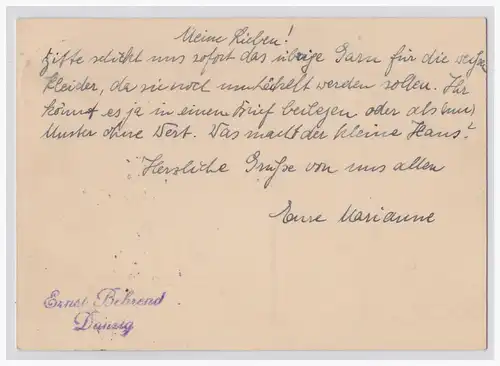 Meine Lieben!
Bitte schickt uns sofort das übrige Garn für die weißen
Kleider, da sie noch umhäkelt werden sollen. Ihr
könnt es ja in einem Brief beilegen oder als (nur)
Muster ohne Wert. Was macht der kleine Hans?
Herzliche Grüße von uns allen
Eure Marianne
Ernst Behrend
Danzig